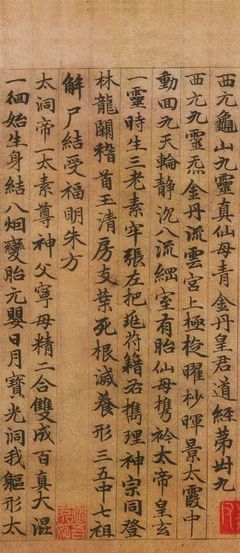 西元龜山九靈真仙母青金丹皇君道經第卅九
西元九靈炁金丹流雲宮上極梭曜杪暉景太霞中
動回九天輪静沉八流網室有胎仙母攜衿太帝皇玄
一靈時生三老素牢張左把延符籍右攜理神宗同登
林龍闕稽首玉清房支葉死根滅養形三五中七祖
解尸結受福明朱方
太洞帝一太素尊神父寧母精二合雙成百真大混
一徊始生身結八烟變胎元嬰日月寶光洞我軀形太